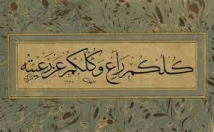 كلكم راع وكلكم مسؤول عن رعيته